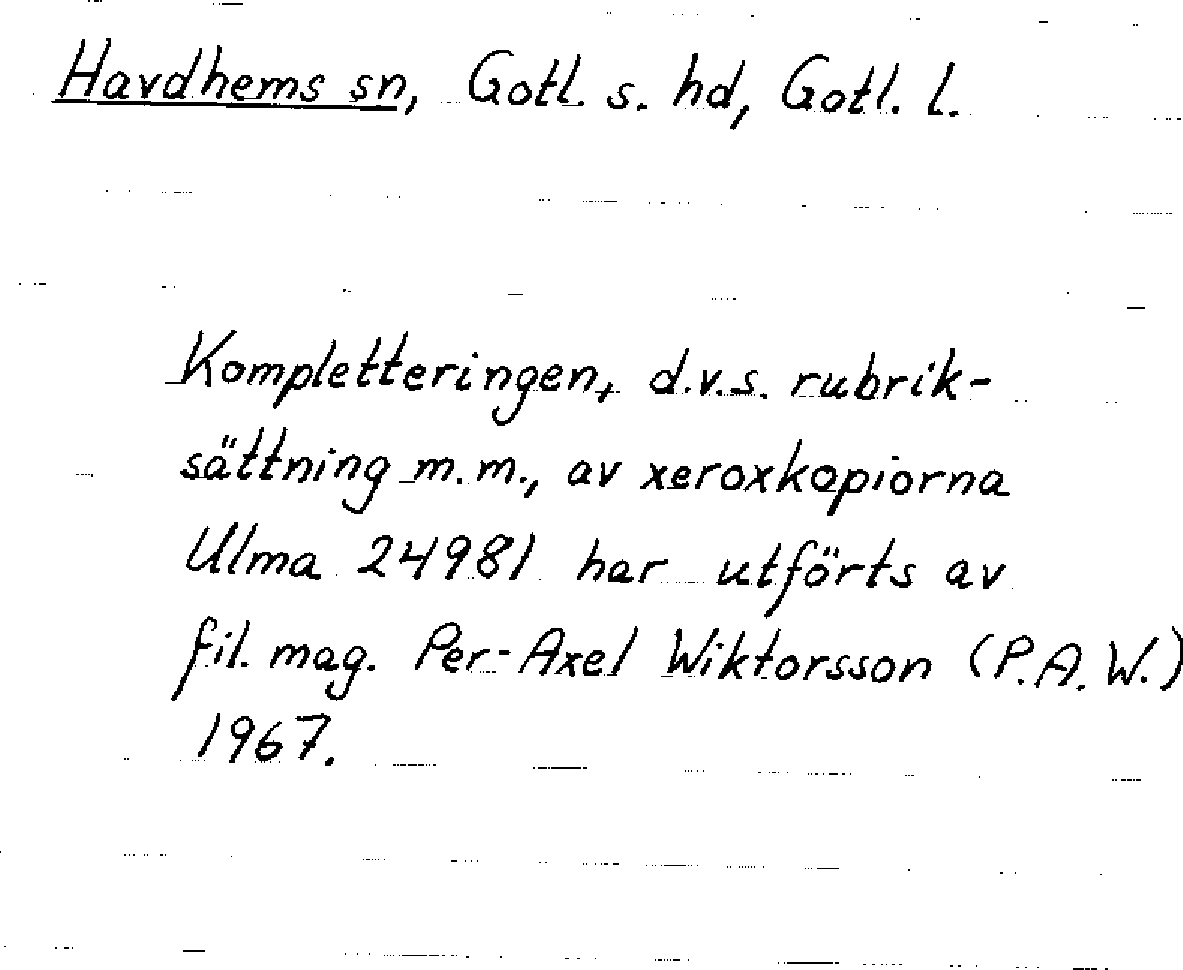 Havdhems sn, Gotl. s. hd, Gotl. l.
Kompletteringen, d.v.s. rubrik-
sättning m.m., av xeroxkopiorna
Ulma 24981 har utförts av
fil. mag. Per-Axel Wiktorsson (P.A.W.)
1967.